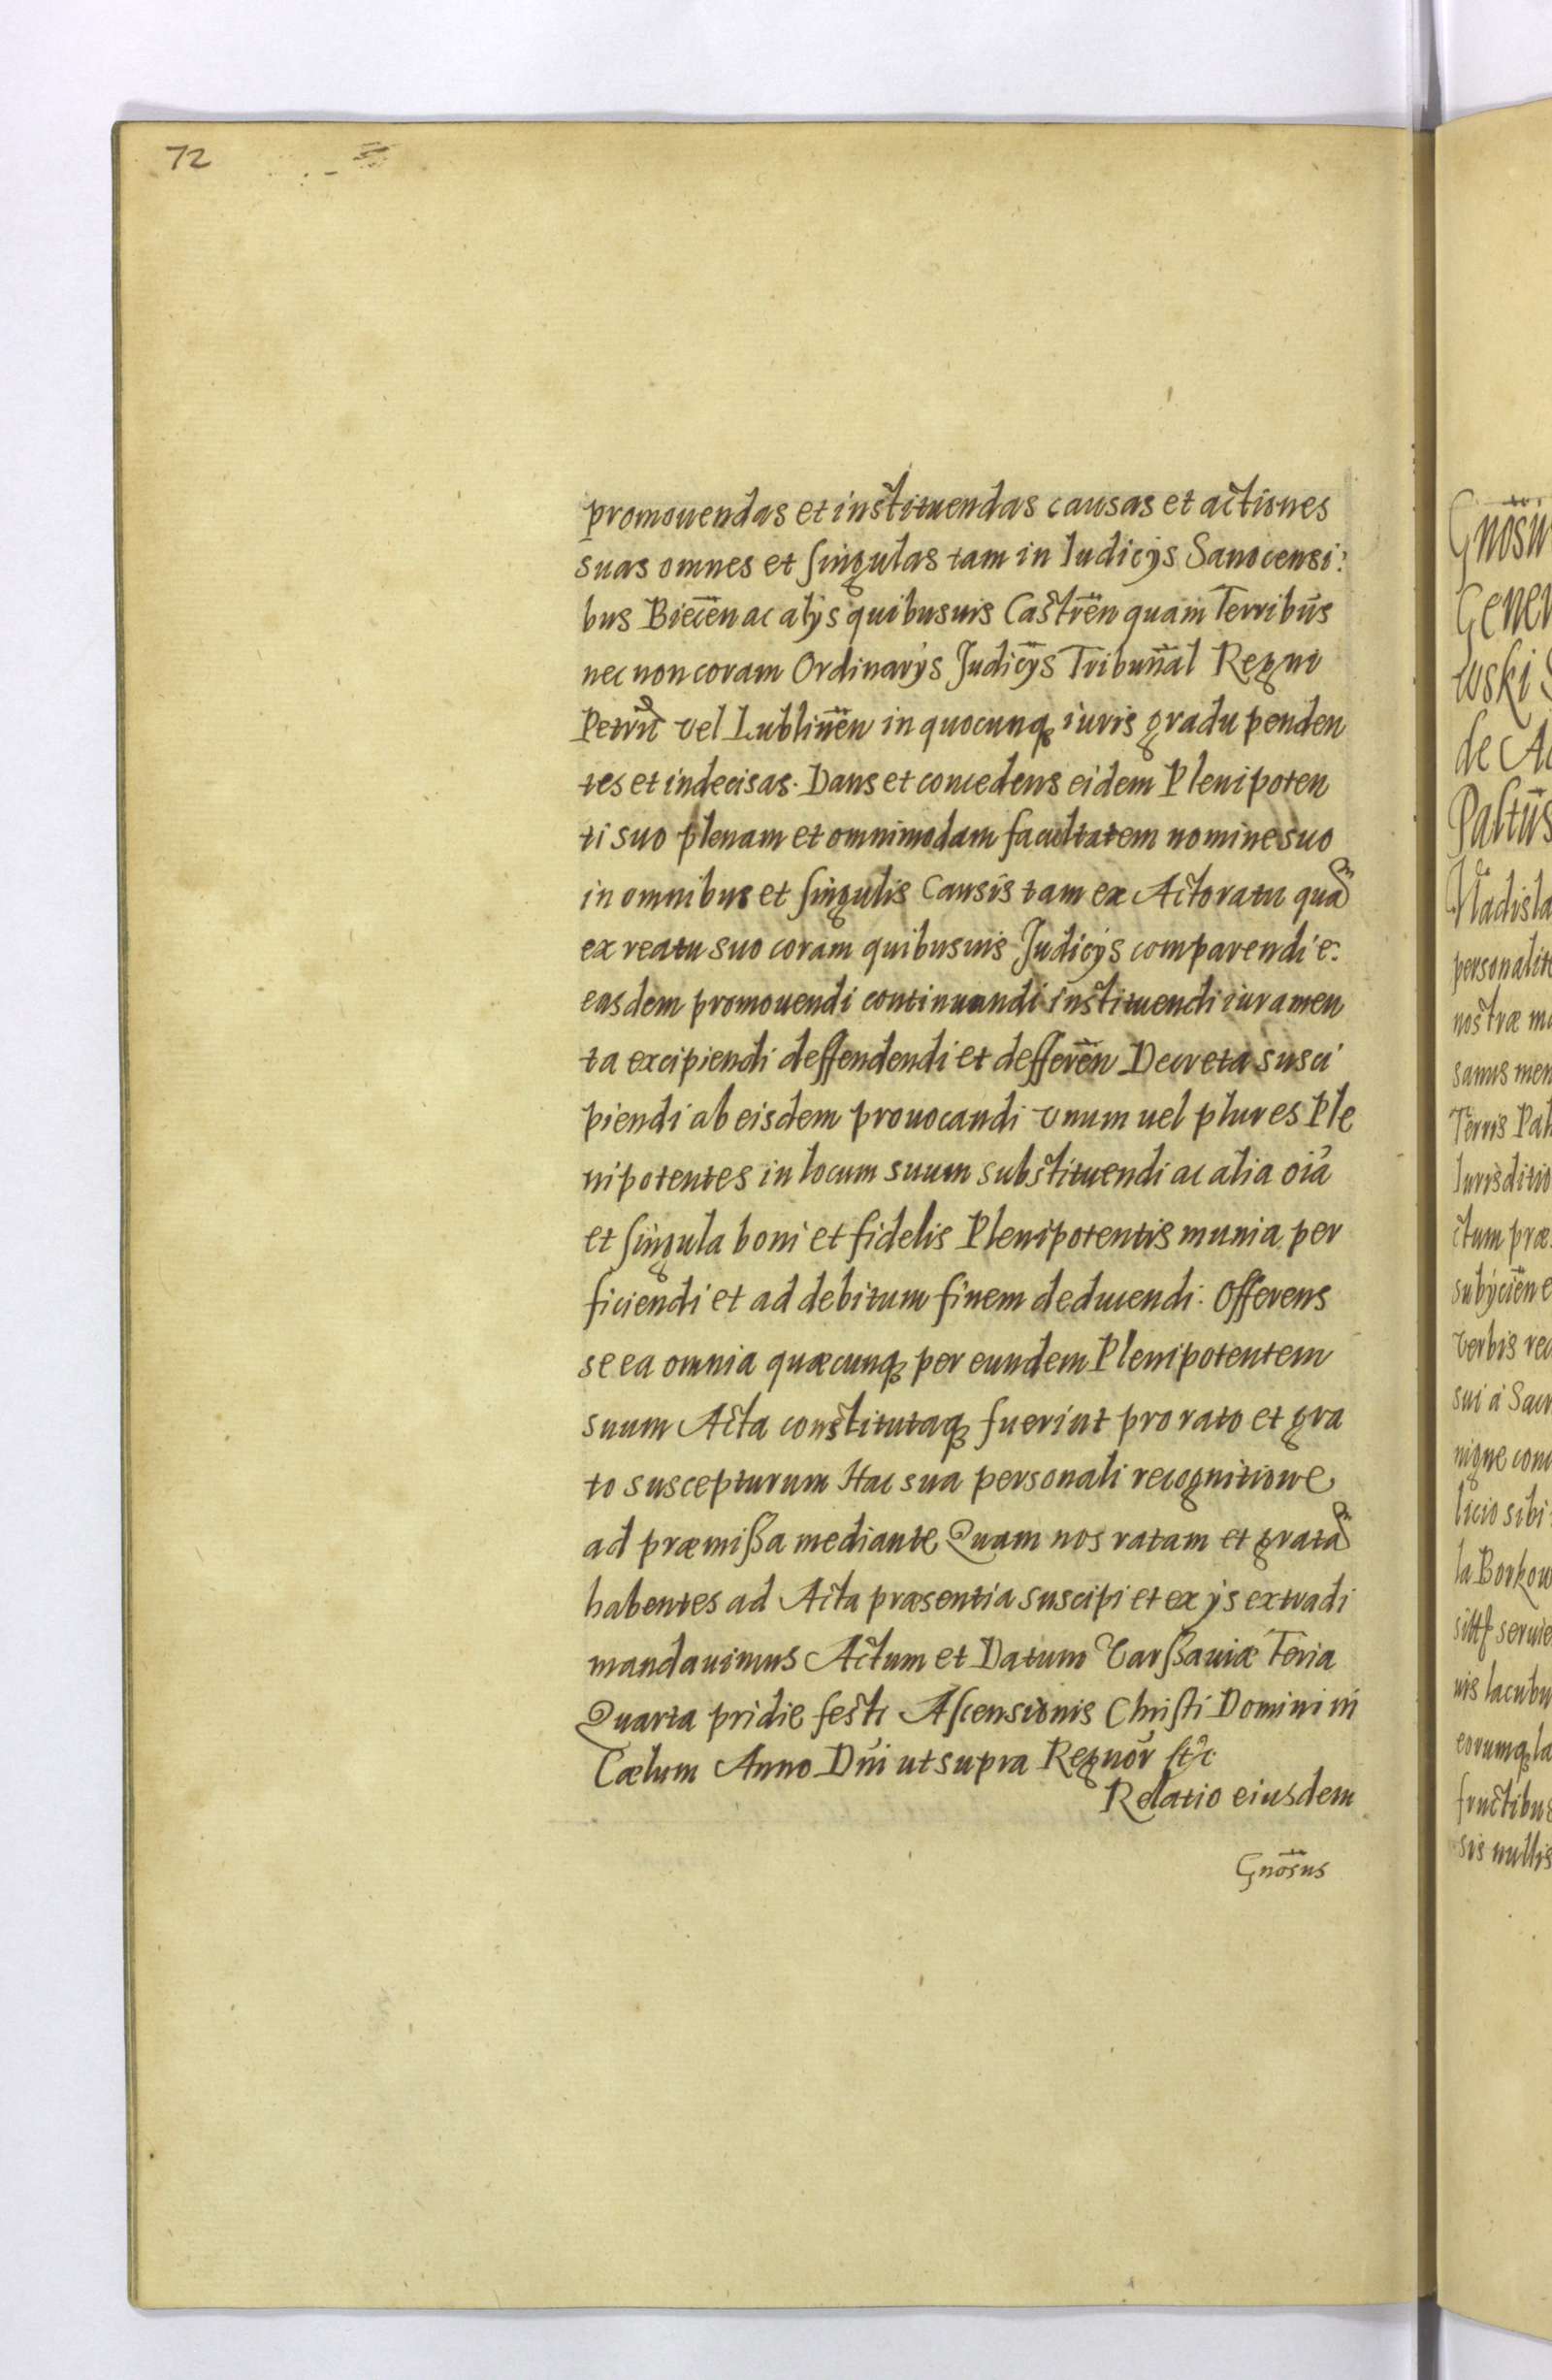 72
promouendas et instituendas causas et actiones
suas omnes et singulas tam in Iudicijs Sanocensi:
bus Biecēn ac alijs quibusuis Castrēn quam Terribūs
nec non coram Ordinarijs Judicijs Tribun̄al Regni
Petrīt vel Lublinēn in quocunq iuris gradu penden
tes et indecisas. Dans et concedens eidem Plenipoten
ti suo plenam et omnimodam facultatem nomine suo
in omnibus et singulis Causis tam ex Actoratu quam
ex reatu suo coram quibusuis Judicijs comparendi e:
easdem promouendi continuandi instituendi iuramen
ta excipiendi deffendendi et defferēn Decreta susci
piendi ab eisdem prouocandi vnum uel plures Ple
nipotentes in locum suum substituendi ac alia oīa
et singula boni et fidelis Plenipotentis munia per
ficiendi et ad debitum finem deducendi: Offerens
se ea omnia quæcunq per eundem Plenipotentem
suum Acta constitutaq fuerint pro rato et gra
to suscepturum Hac sua personali recognitione
ad præmißa mediante Quam nos ratam et gratam
habentes ad Acta præsentia suscipi et ex ijs extradi
mandauimus Actum et Datum Varßauiæ Feria
Quarta pridie festi Ascensionis Christi Domini in
Cælum Anno Dn̄i ut supra Regnor̄ etc
Relatio eiusdem
Gnōsus
Gnōsu
Gener
wski S
de A
Paltūs
Vladisla
personalite
nostræ m
sanus men
Terris Pal
Iurisditio
ctum præ
subijciēn e
verbis rec
sui a Sacr
nigne con
licio sibi
la Borkow
seruie
uis lacubu
eorumq la
fructibus
sis nullis